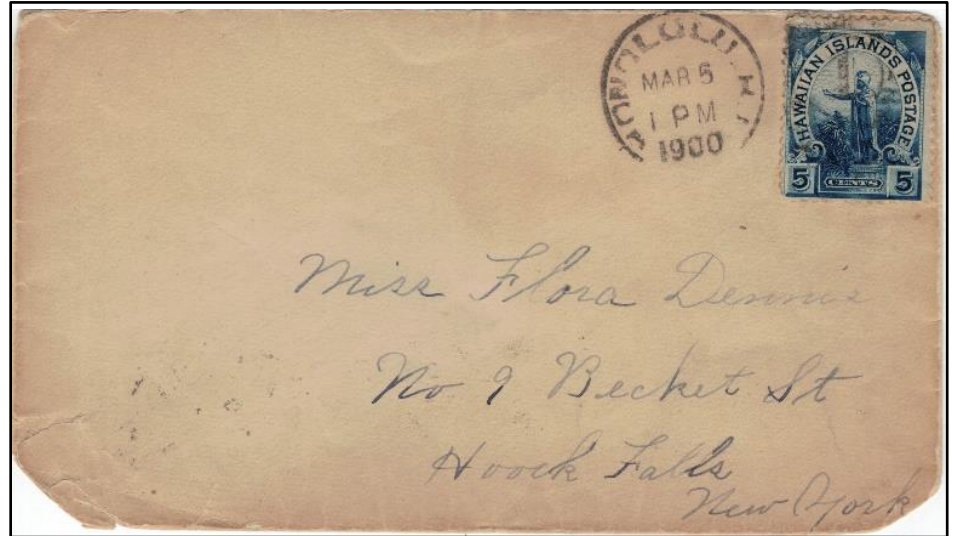 HONOLULU. H.I.
MAR 5
1 PM
1900
HAWAIIAN ISLANDS POSTAGE
5 CENTS 5
Miss Flora Dennis
No 9 Becket St
Hoock Falls
New York